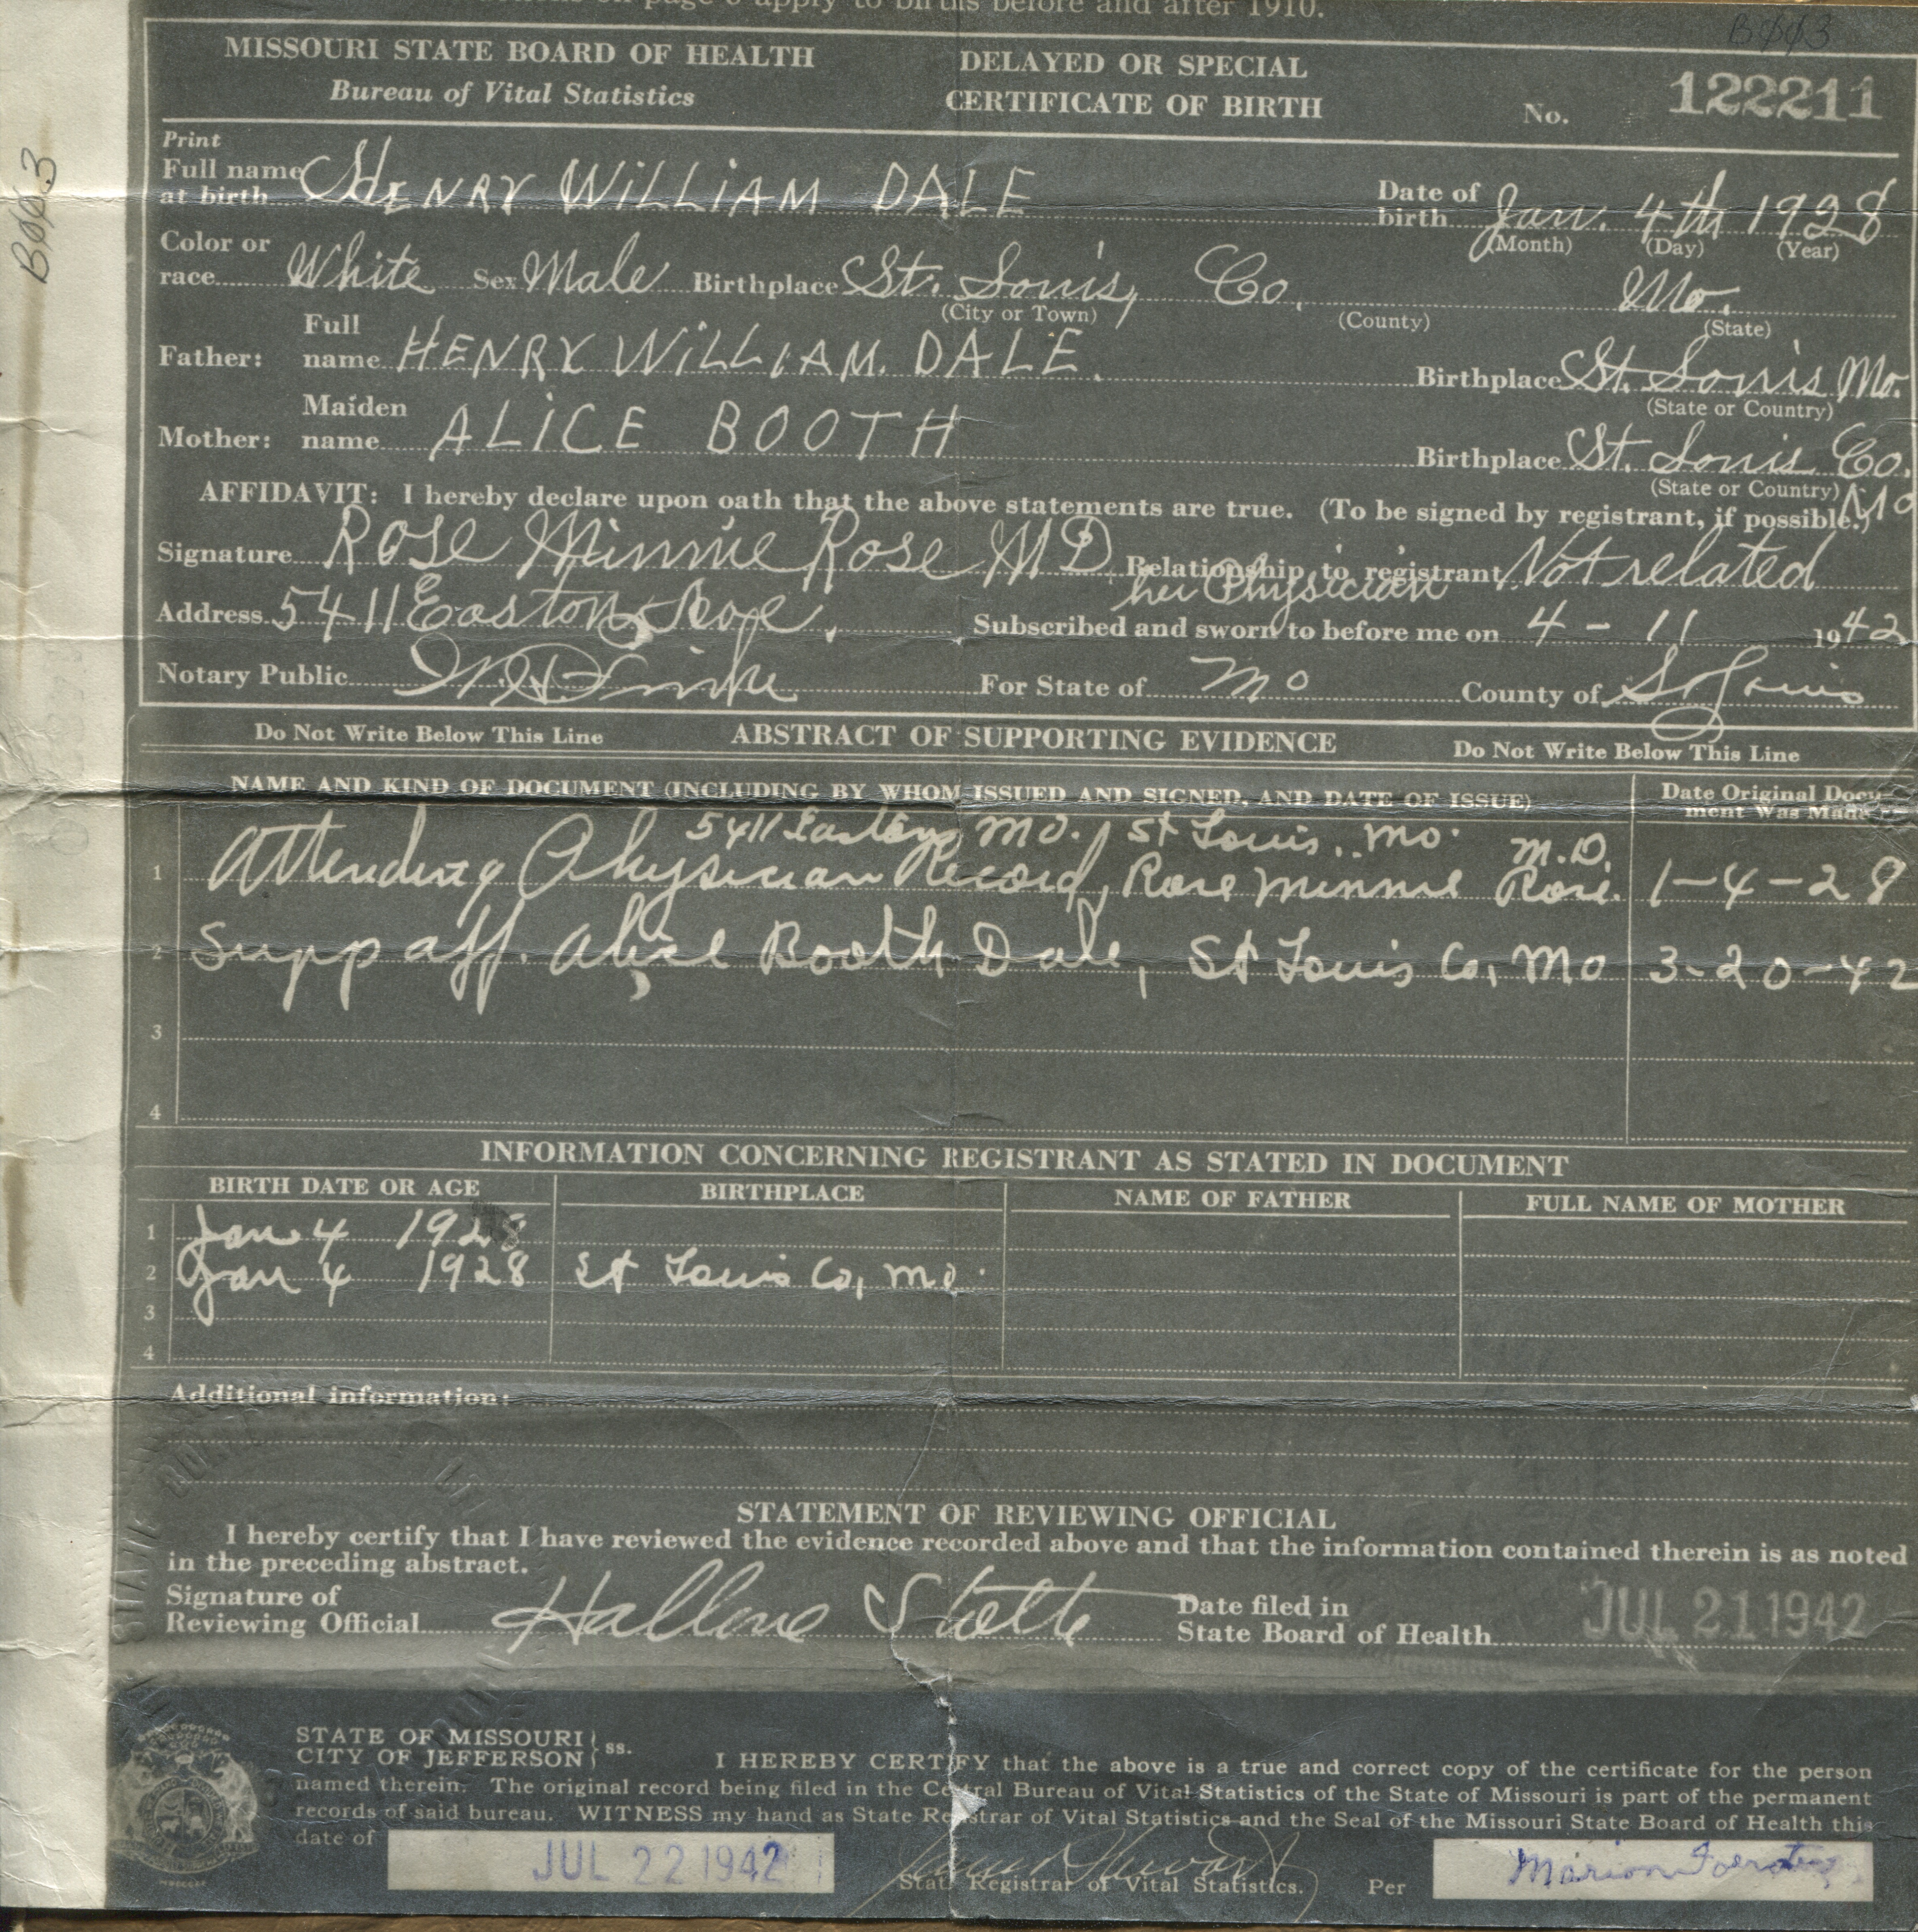 page 6 apply to births before and after 1910.
MISSOURI STATE BOARD OF HEALTH
Bureau of Vital Statistics
DELAYED OR SPECIAL
CERTIFICATE OF BIRTH
No. 122211
Print
Full name at birth HENRY WILLIAM DALE Date of birth Jan. 4th 1928
(Month) (Day) (Year)
Color or race White Sex Male Birthplace St. Louis, Co. Mo.
(City or Town) (County) (State)
Father: Full name HENRY WILLIAM. DALE. Birthplace St. Louis Mo.
(State or Country)
Mother: Maiden name ALICE BOOTH Birthplace St. Louis Co. Mo
(State or Country)
AFFIDAVIT: I hereby declare upon oath that the above statements are true. (To be signed by registrant, if possible.)
Signature Rose Minnie Rose MD Relationship to registrant Not related
her Physician
Address 5411 Easton Subscribed and sworn to before me on 4-11 1942
Notary Public For State of Mo County of St Louis
Do Not Write Below This Line ABSTRACT OF SUPPORTING EVIDENCE Do Not Write Below This Line
NAME AND KIND OF DOCUMENT (INCLUDING BY WHOM ISSUED AND SIGNED, AND DATE OF ISSUE) Date Original Document Was Made
5411 Easton Mo. St Louis, Mo. M.D.
1 Attending Physician Record, Rose Minnie Rose. 1-4-28
2 Supp aff. Alice Booth Dale, St Louis Co, Mo 3-20-42
3
4
INFORMATION CONCERNING REGISTRANT AS STATED IN DOCUMENT
BIRTH DATE OR AGE BIRTHPLACE NAME OF FATHER FULL NAME OF MOTHER
1 Jan 4 1928
2 Jan 4 1928 St Louis Co, Mo.
3
4
Additional information:
STATEMENT OF REVIEWING OFFICIAL
I hereby certify that I have reviewed the evidence recorded above and that the information contained therein is as noted
in the preceding abstract.
Signature of
Reviewing Official
Date filed in
State Board of Health JUL 21 1942
STATE OF MISSOURI
CITY OF JEFFERSON ss. I HEREBY CERTIFY that the above is a true and correct copy of the certificate for the person
named therein. The original record being filed in the Central Bureau of Vital Statistics of the State of Missouri is part of the permanent
records of said bureau. WITNESS my hand as State Registrar of Vital Statistics and the Seal of the Missouri State Board of Health this
date of JUL 22 1942
State Registrar of Vital Statistics. Per Marion